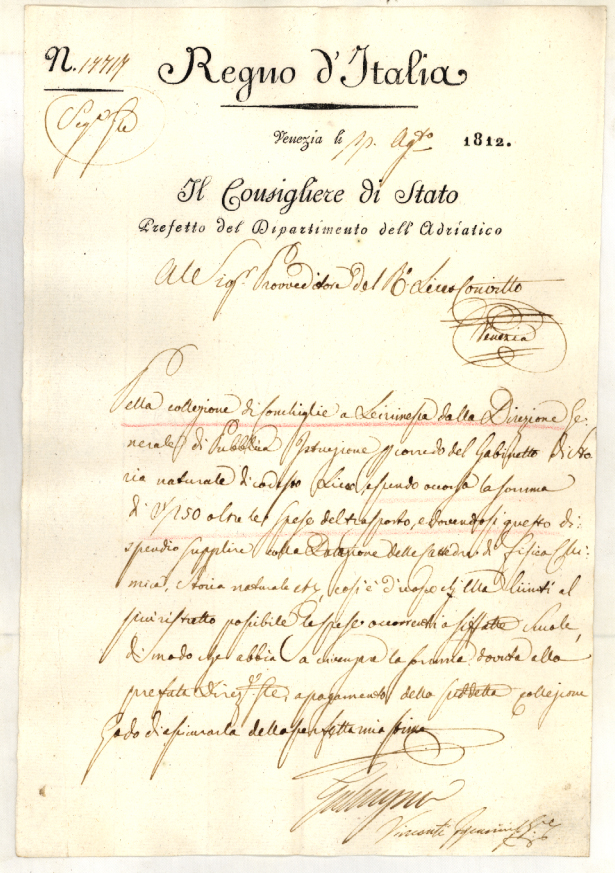 N. 14714 Regno d'Italia
Seg.a
Venezia li Ag.to 1812.
Il Consigliere di Stato
Prefetto del Dipartimento dell'Adriatico
Al Sig.r Provveditore del R.o Liceo Convitto
Venezia
Della collezione di Conchiglie a dalla Direzione Ge-
nerale di Pubblica Istruzione corredo del Gabinetto di Sto
ria naturale di codesto Liceo, essendo occorsa la somma
di 150 oltre le spese del trasporto, e dovendosi questo di-
spendio supplire colla Dotazione delle Cattedre di Fisica Chi-
mica, Storia naturale, così è d'uopo ch'Ella limiti al
più ristretto possibile le spese occorrenti a siffatte Scuole,
di modo che abbia a la somma dovuta alla
prefata a pagamento della suddetta collezione
Godo di assicurarla della perfetta mia stima